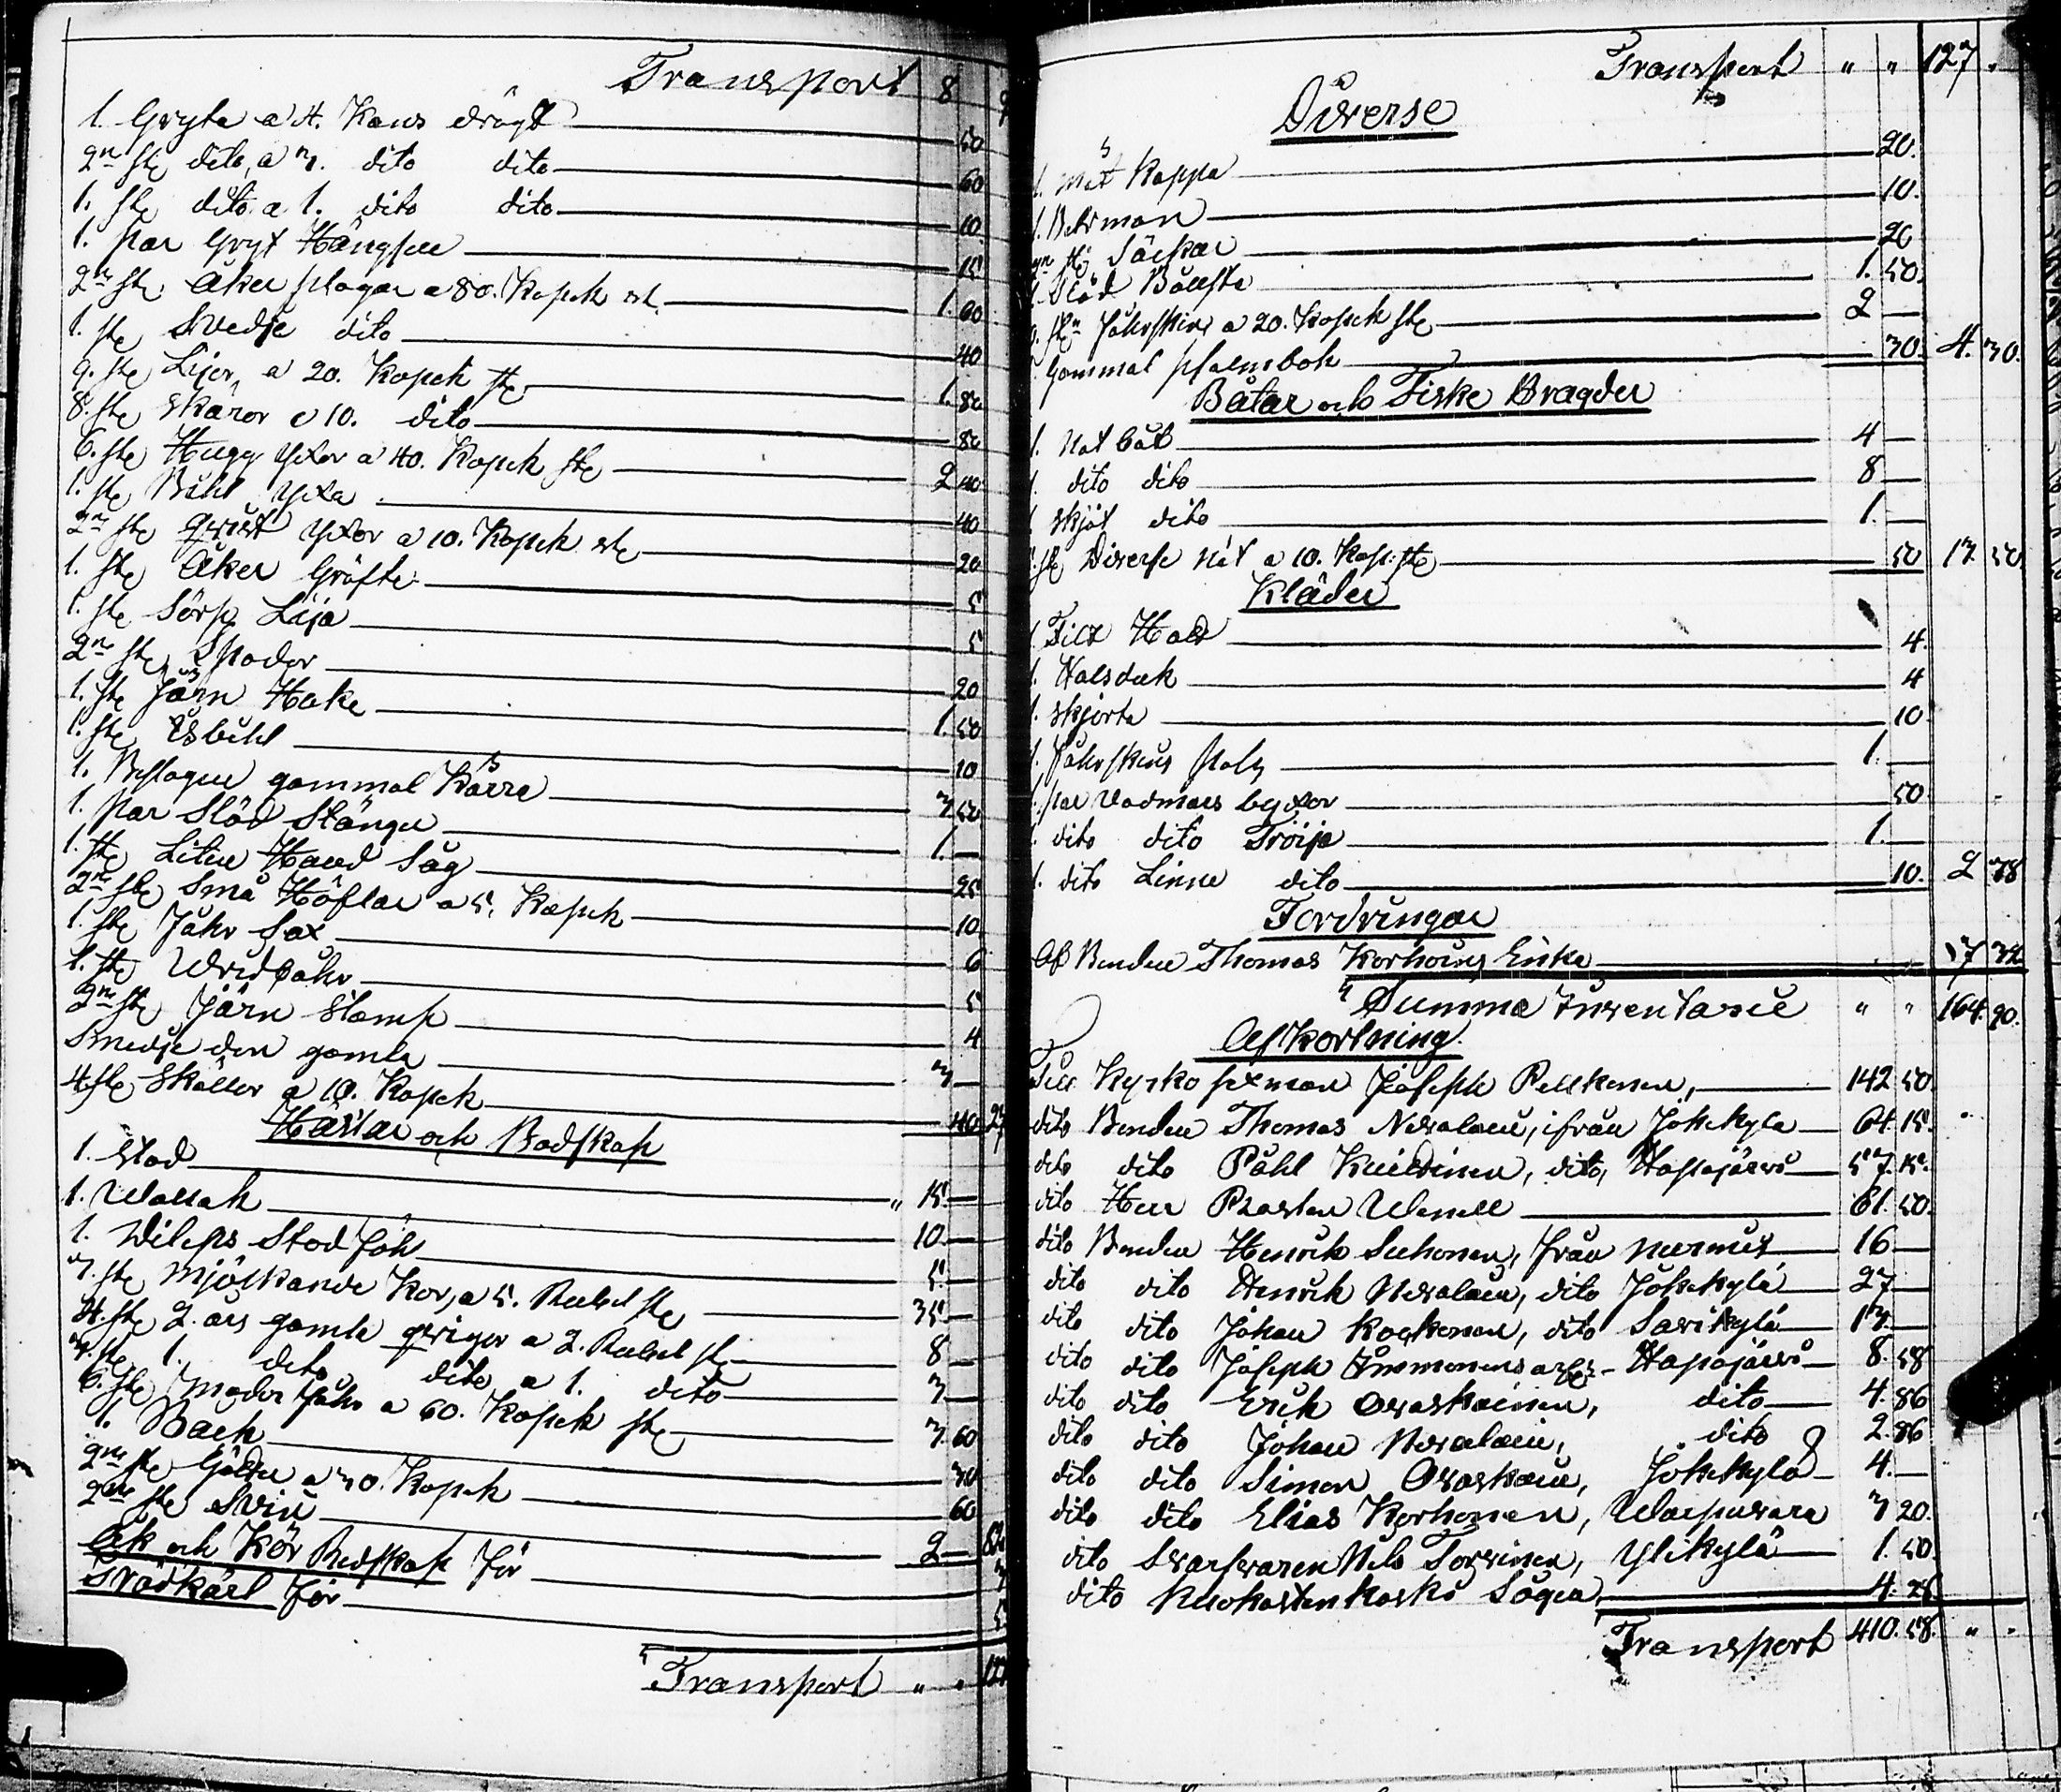 Transport 8
1. Gryta a 4. Kans drögt 50
2ne ste dito, a 3. dito dito 60
1. ste dito a 1. dito dito 10
1. par Gryt Hängslen 15
2ne ste Åker plogar a 80. Kopek st. 1. 60
1. ste Svedje dito 40
9. ste Lijor, a 20. Kopek ste 1. 80
8. ste Skäror a 10. dito 80
6. ste Hugg Yxor a 40. Kopek ste 2 40
1. ste Bihl Yxa 40
2ne ste qvist Yxor a 10. Kopek ste 20
1. ste Åker Gröfte 5
1. ste Sörp Lija 5
2ne ste Spador 20
1. ste Järn Hake 1. 50
1. ste Isbihl 10
1. Beslagen gammal Kärra 3 50
1. par Släd Stänger 1. —
1. ste Liten Hand Såg 25
2ne ste Små Höflar a 5. Kopek 10
1. ste Fåhr Sax 6
1. ste Wrid 5
2ne ste Järn Stamp 4
Smedje den gamla 3 —
4. ste Skällor a 10. Kopek 40 27
Hästar och Bodskap
1. Stod " 15 —
1. Wallak 10 —
1. Wileps Stod Föhl 5 —
7. ste Mjölkande Kor, a 5. Rubel ste 35 —
4. ste 2. års gamla qvigor a 2. Rubel ste 8 —
3. ste 1. dito dito a 1. dito 3 —
6. ste Moder Fåhr a 60. Kopek ste 3. 60
1. Back 30
2ne ste Galtar a 30. Kopek 60
2ne ste Svin 2 — 82
Åk och Kör Redskap för 3
Trädkärl för 5
Transport " " 127
Transport " " 127 "
Diverse
1. Mat Kappa 20.
1. Betsman 10.
2ne ste Säckar 20
1. Släd 1. 50.
10. ste Fåhrskin a 20. Kopek ste 2 —
1. Gammal psalmbok 30. 4. 30.
Båtar och Fiske Bragder
1. Not båt 4 —
1. dito dito 8 —
1. Skjöt dito 1. —
5. ste Diverse Nät a 10. Kop: ste 50 13 50.
Kläder
1. Filt Hatt 4.
1. Halsduk 4
1. Skjorta 10
1. Fåhrskins päls 1. —
1. par Vadmals byxor 50
1. dito dito Tröija 1. —
1. dito Linne dito 10. 2 78
Fordringar
Af Bonden Thomas Korhoins Enka 17 32
Summa Inventarie " " 164. 90.
Afkortning
Till Kyrko sexman Joseph Pellkenen, 142 50
dito Bonden Thomas Nevalain, ifrån Jokikylä 64. 15.
dito dito Påhl Kuildinen, dito, Hapajärvi 57. 15.
dito Herr Prosten Wenell 61. 50.
dito Bonden Henrik Seehonen, från Nurmis 16 —
dito dito Henrik Nevalain, dito Jokikylä 27 —
dito dito Johan Kockonen, dito Savikylä 13 —
dito dito Joseph Immonens arfr. Hapajärvi 8. 58
dito dito Erik Ovaskainen, dito 4. 86
dito dito Johan Nevalain, dito 2. 86
dito dito Simon Ovaskain, Jokikylä 4. —
dito dito Elias Korhonen, Walpavara 3 20.
dito Svarfvaren Nils Torvinen, Ylikylä 1. 50
dito Kuokastenkoski Sågen 4. 28
Transport 410. 58. " "